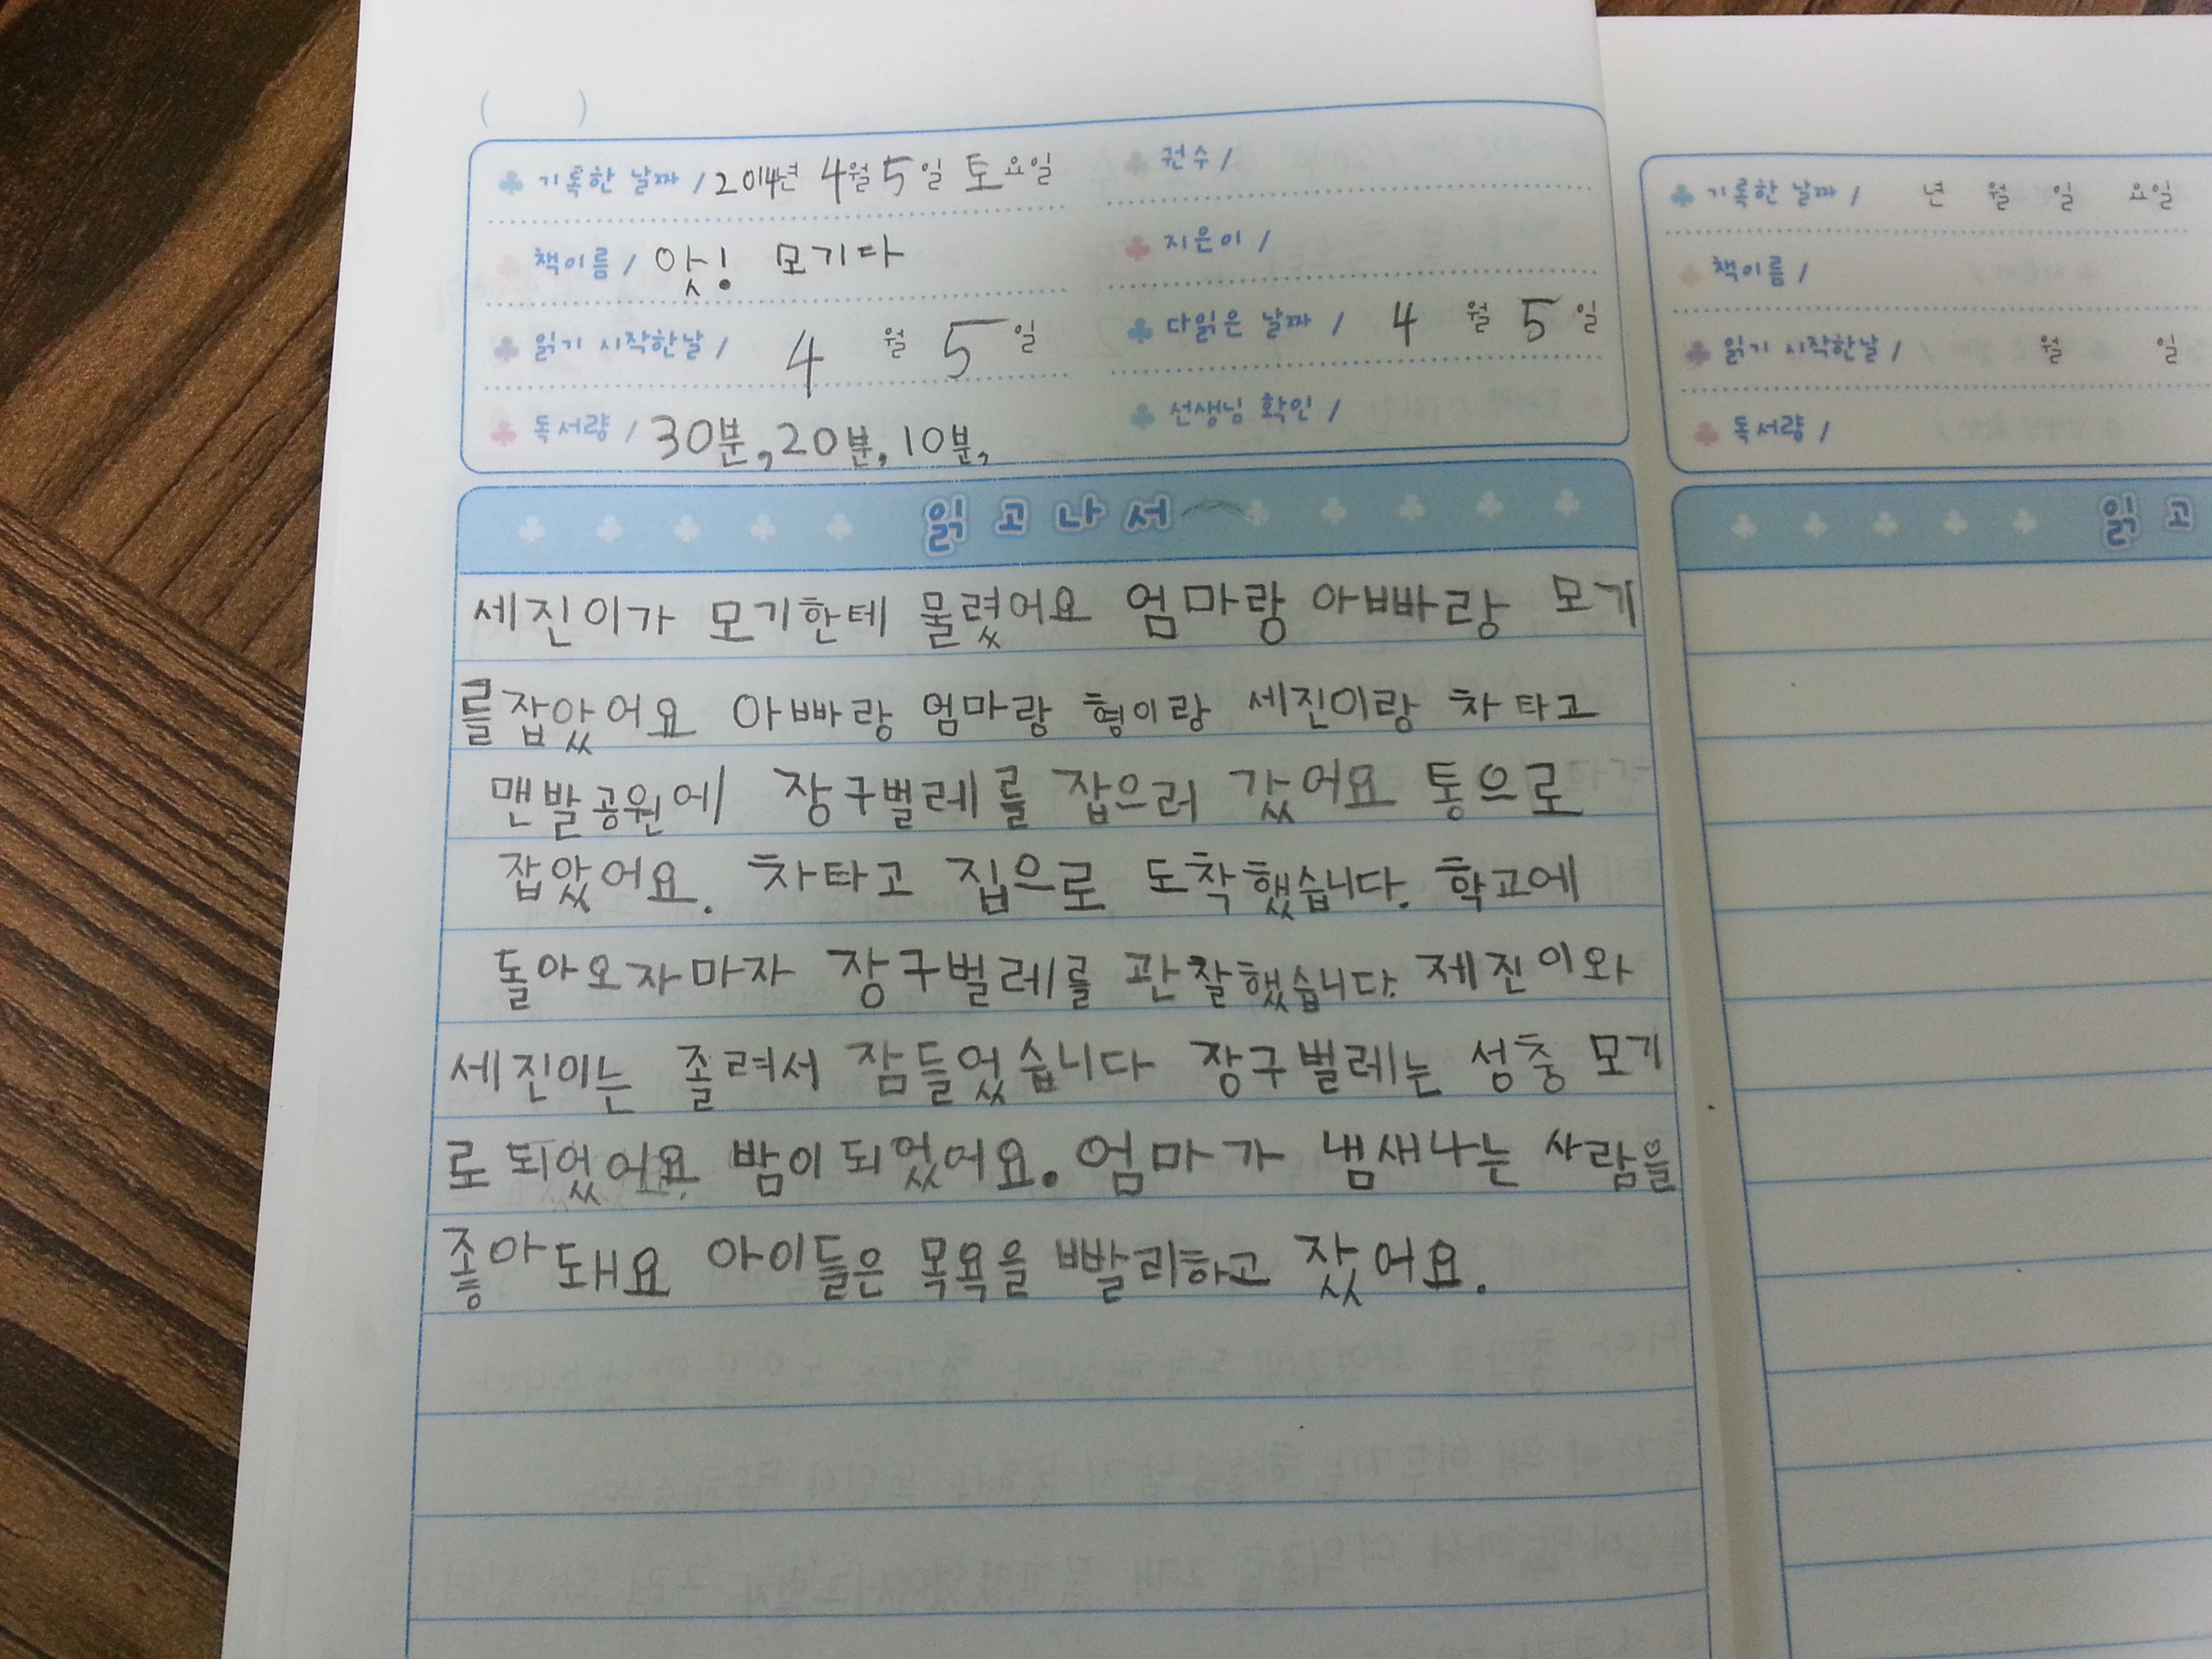 ( )
기록한 날짜 / 2014년 4월 5일 토요일
권수 /
책이름 / 앗! 모기다
지은이 /
읽기 시작한날 / 4 월 5 일
다읽은 날짜 / 4 월 5 일
독서량 / 30분, 20분, 10분,
선생님 확인 /
읽고나서
세진이가 모기한테 물렸어요 엄마랑 아빠랑 모기
를잡았어요 아빠랑 엄마랑 형이랑 세진이랑 차타고
맨발공원에 장구벌레를 잡으러 갔어요 통으로
잡았어요. 차타고 집으로 도착했습니다. 학교에
돌아오자마자 장구벌레를 관찰했습니다. 제진이와
세진이는 졸려서 잠들었습니다 장구벌레는 성충 모기
로되었어요. 밤이되었어요. 엄마가 냄새나는 사람을
좋아돼요 아이들은 목욕을 빨리하고 잤어요.
기록한 날짜 / 년 월 일 요일
책이름 /
읽기 시작한날 / 월 일
독서량 /
읽고